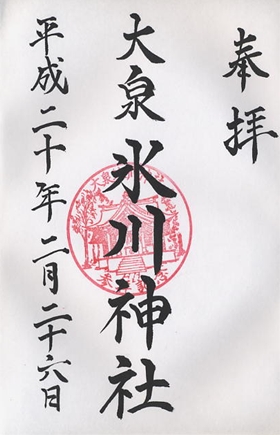 奉拝
大泉氷川神社
平成二十年二月二十六日